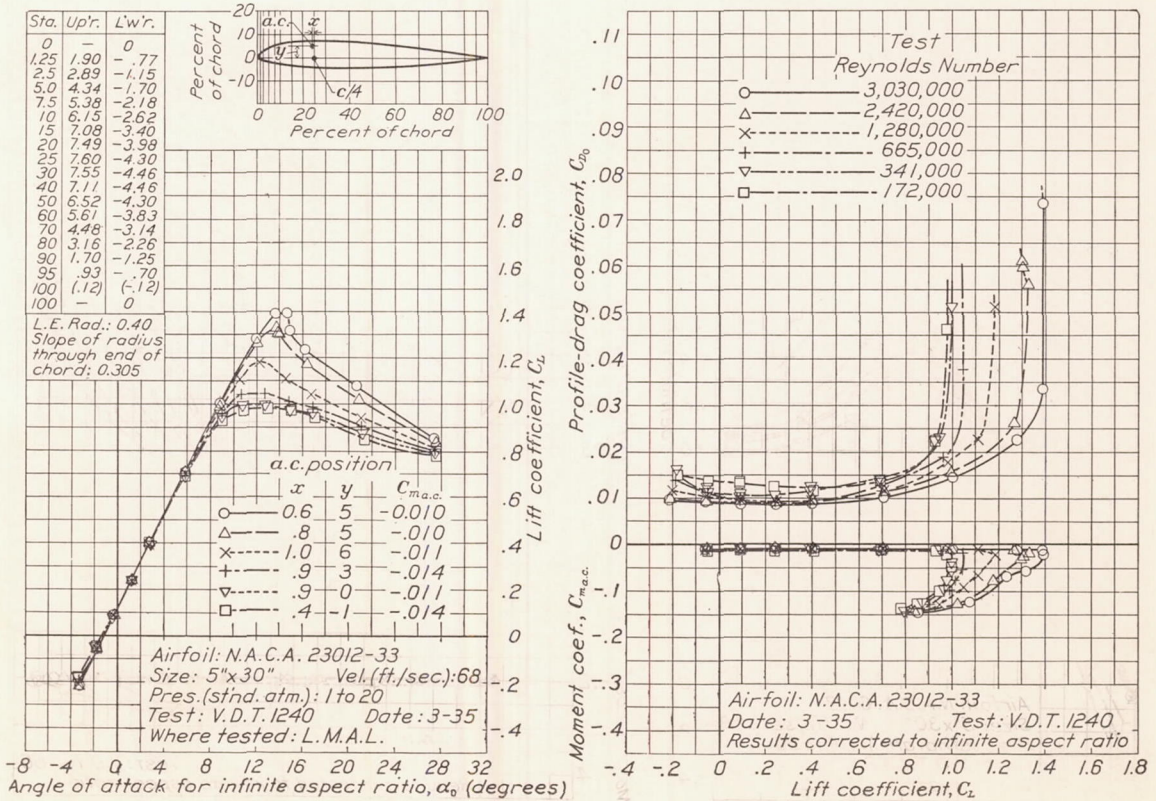 Sta. Up'r. L'w'r.
0 — 0
1.25 1.90 -.77
2.5 2.89 -1.15
5.0 4.34 -1.70
7.5 5.38 -2.18
10 6.15 -2.62
15 7.08 -3.40
20 7.49 -3.98
25 7.60 -4.30
30 7.55 -4.46
40 7.11 -4.46
50 6.52 -4.30
60 5.61 -3.83
70 4.48 -3.14
80 3.16 -2.26
90 1.70 -1.25
95 .93 -.70
100 (.12) (-.12)
100 — 0
L.E. Rad.: 0.40
Slope of radius
through end of
chord: 0.305
Percent
of chord
20
10
0
-10
a.c.
x
y
c/4
0 20 40 60 80 100
Percent of chord
2.0
1.8
1.6
1.4
1.2
1.0
.8
.6
.4
.2
0
-.2
-.4
Lift coefficient, CL
a.c. position
x y Cm a.c.
0.6 5 -0.010
.8 5 -.010
1.0 6 -.011
.9 3 -.014
.9 0 -.011
.4 -1 -.014
Airfoil: N.A.C.A. 23012-33
Size: 5"x30" Vel.(ft./sec.): 68
Pres.(st'nd. atm.): 1 to 20
Test: V.D.T. 1240 Date: 3-35
Where tested: L.M.A.L.
-8 -4 0 4 8 12 16 20 24 28 32
Angle of attack for infinite aspect ratio, α0 (degrees)
Test
Reynolds Number
3,030,000
2,420,000
1,280,000
665,000
341,000
172,000
.11
.10
.09
.08
.07
.06
.05
.04
.03
.02
.01
0
-.1
-.2
-.3
-.4
Profile-drag coefficient, CD0
Moment coef., Cm a.c.
Airfoil: N.A.C.A. 23012-33
Date: 3-35 Test: V.D.T. 1240
Results corrected to infinite aspect ratio
-.4 -.2 0 .2 .4 .6 .8 1.0 1.2 1.4 1.6 1.8
Lift coefficient, CL